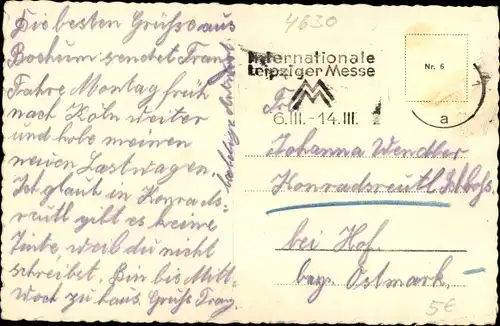 Die besten Grüsse aus
Bochum sendet Franz
Fahre Montag früh
nach Köln weiter
und hole meinen
neuen Lastwagen.
Ich glaub in Konrads-
reutl gibt es keine
Tinte weil du nicht
schreibst. Bin bis Mitt-
woch zu haus. Grüsse Franz
4630
Internationale
Leipziger Messe
MM
6.III.-14.III.
Nr. 6
a
Johanna Wendler
Konradsreutl
bei Hof.
bayr. Ostmark.
5€